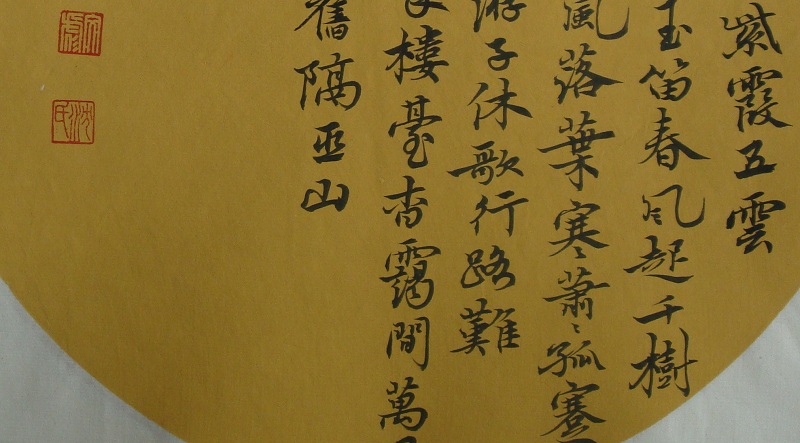 紫霞五雲
玉笛春風起千樹
風落葉寒蕭蕭孤蹇
游子休歌行路難
樓臺杳靄間萬
舊隔巫山